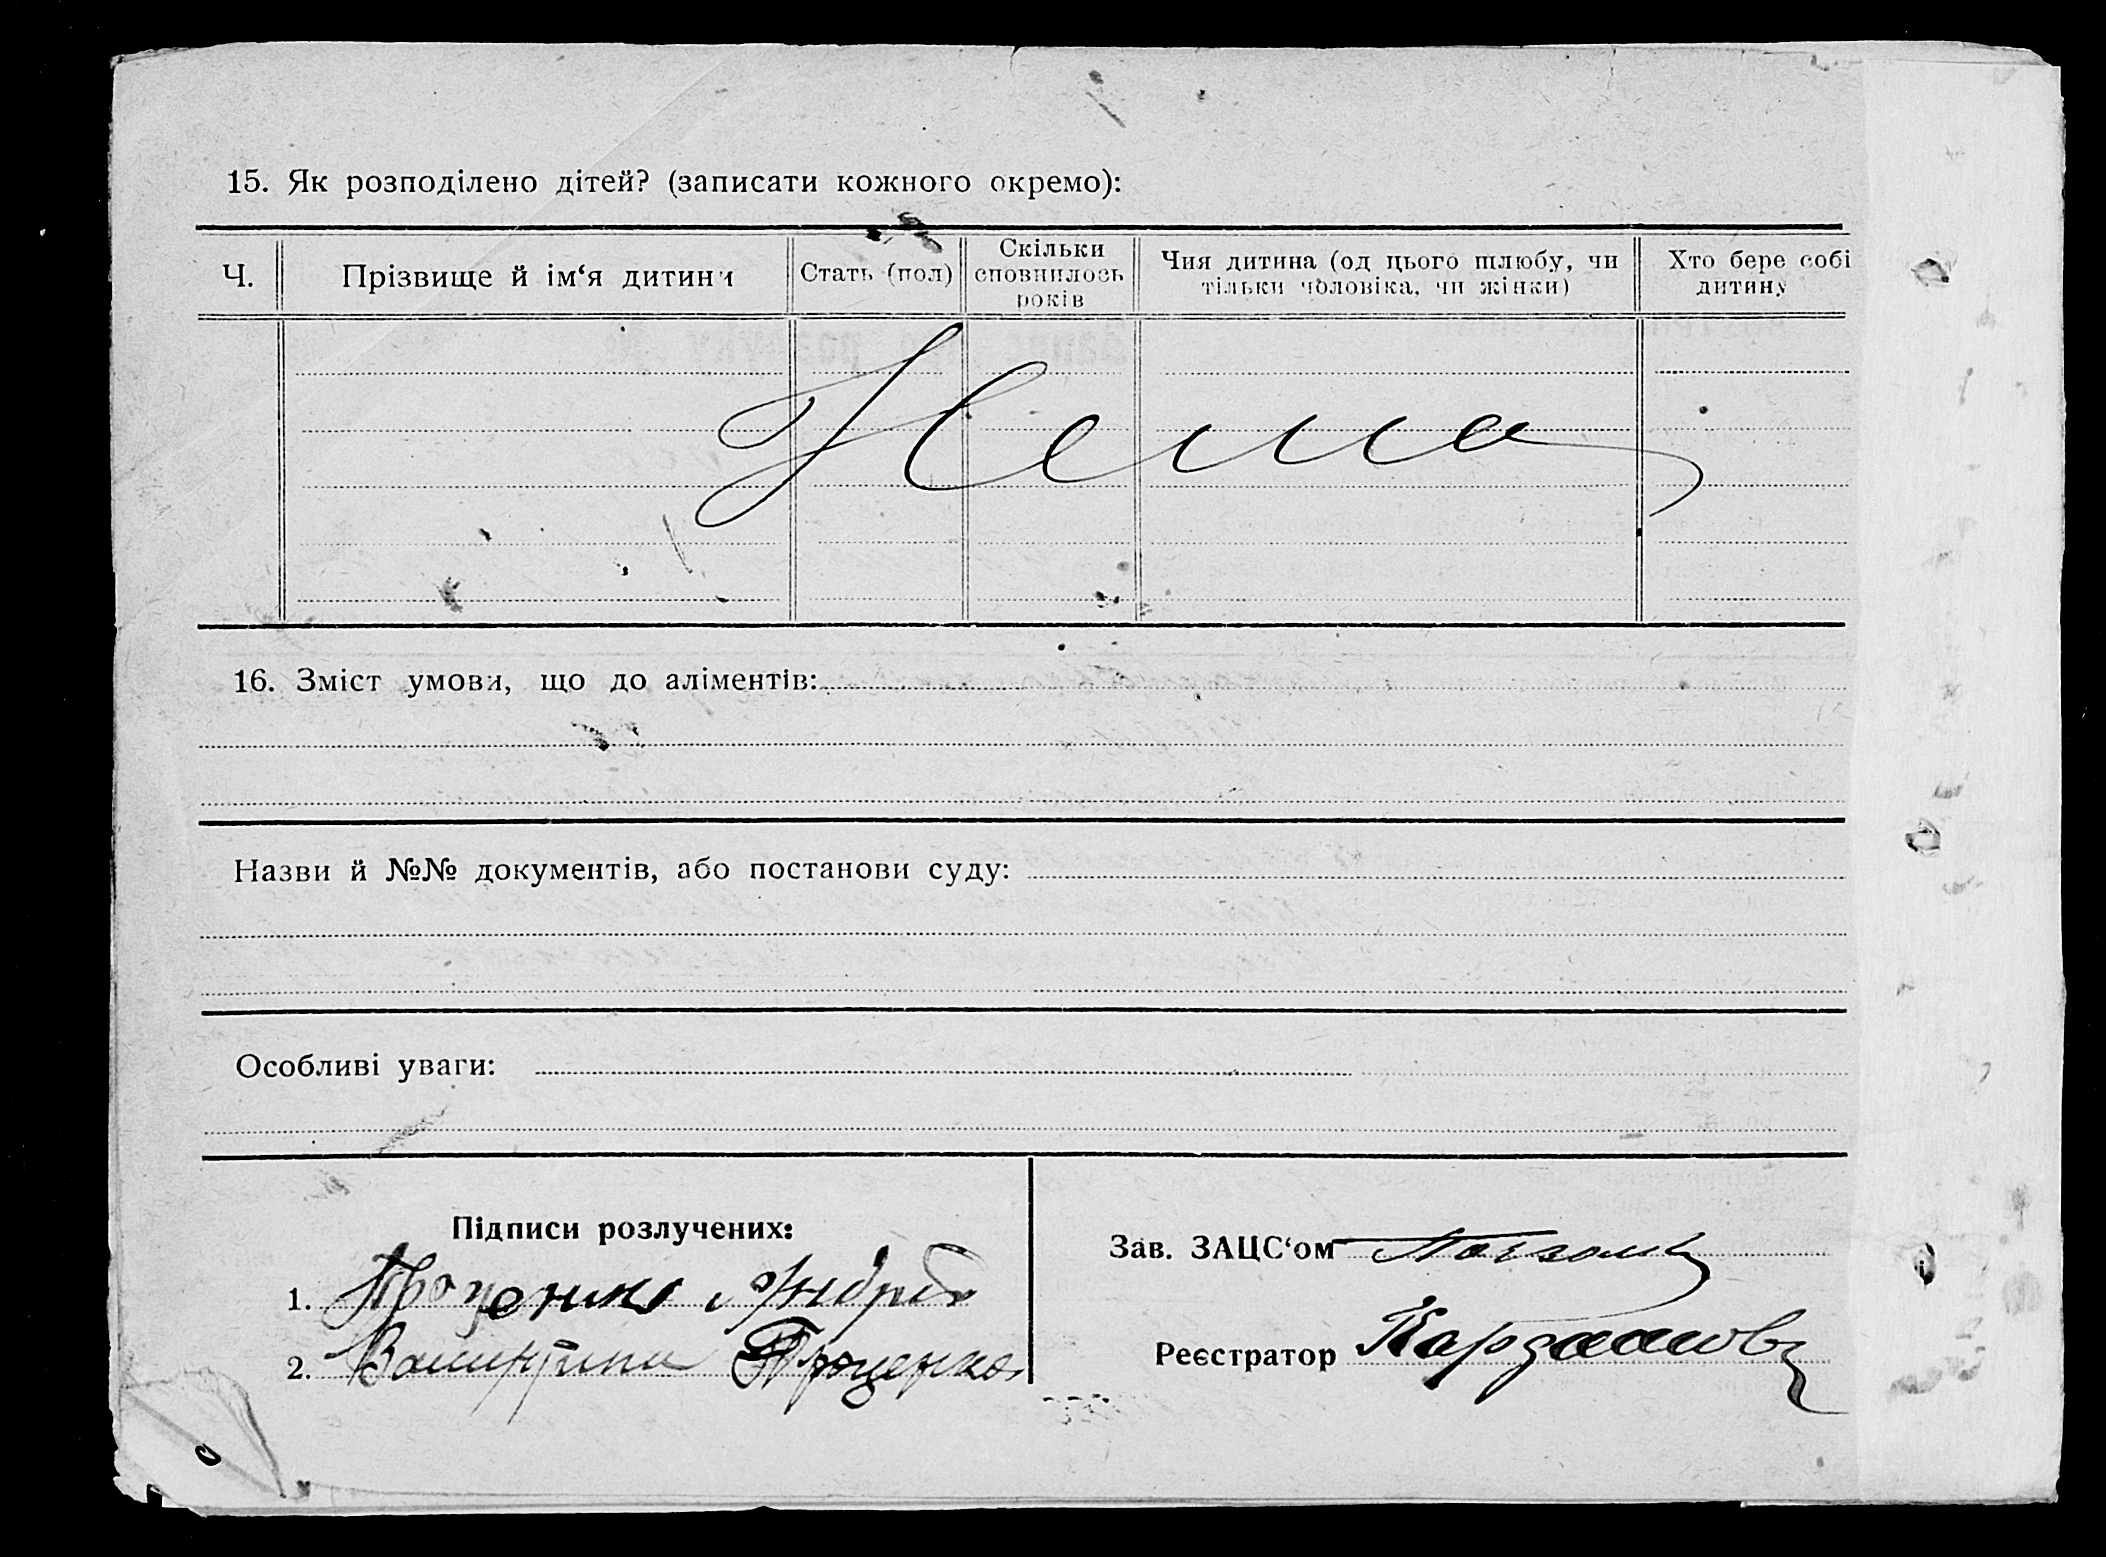 15. Як розподілено дітей? (записати кожного окремо):
Ч.
Прізвище й ім‘я дитини
Стать (пол)
Скільки
сповнилось
років
Чия дитина (од цього шлюбу, чи
тільки чоловіка, чи жінки)
Хто бере собі
дитину
Нема
16. Зміст умови, що до аліментів:
Назви й №№ документів, або постанови суду:
Особливі уваги:
Підписи розлучених:
1. Проценко Андрей
2. Валинтина Проценко
Зав. ЗАЦС‘ом
Реєстратор